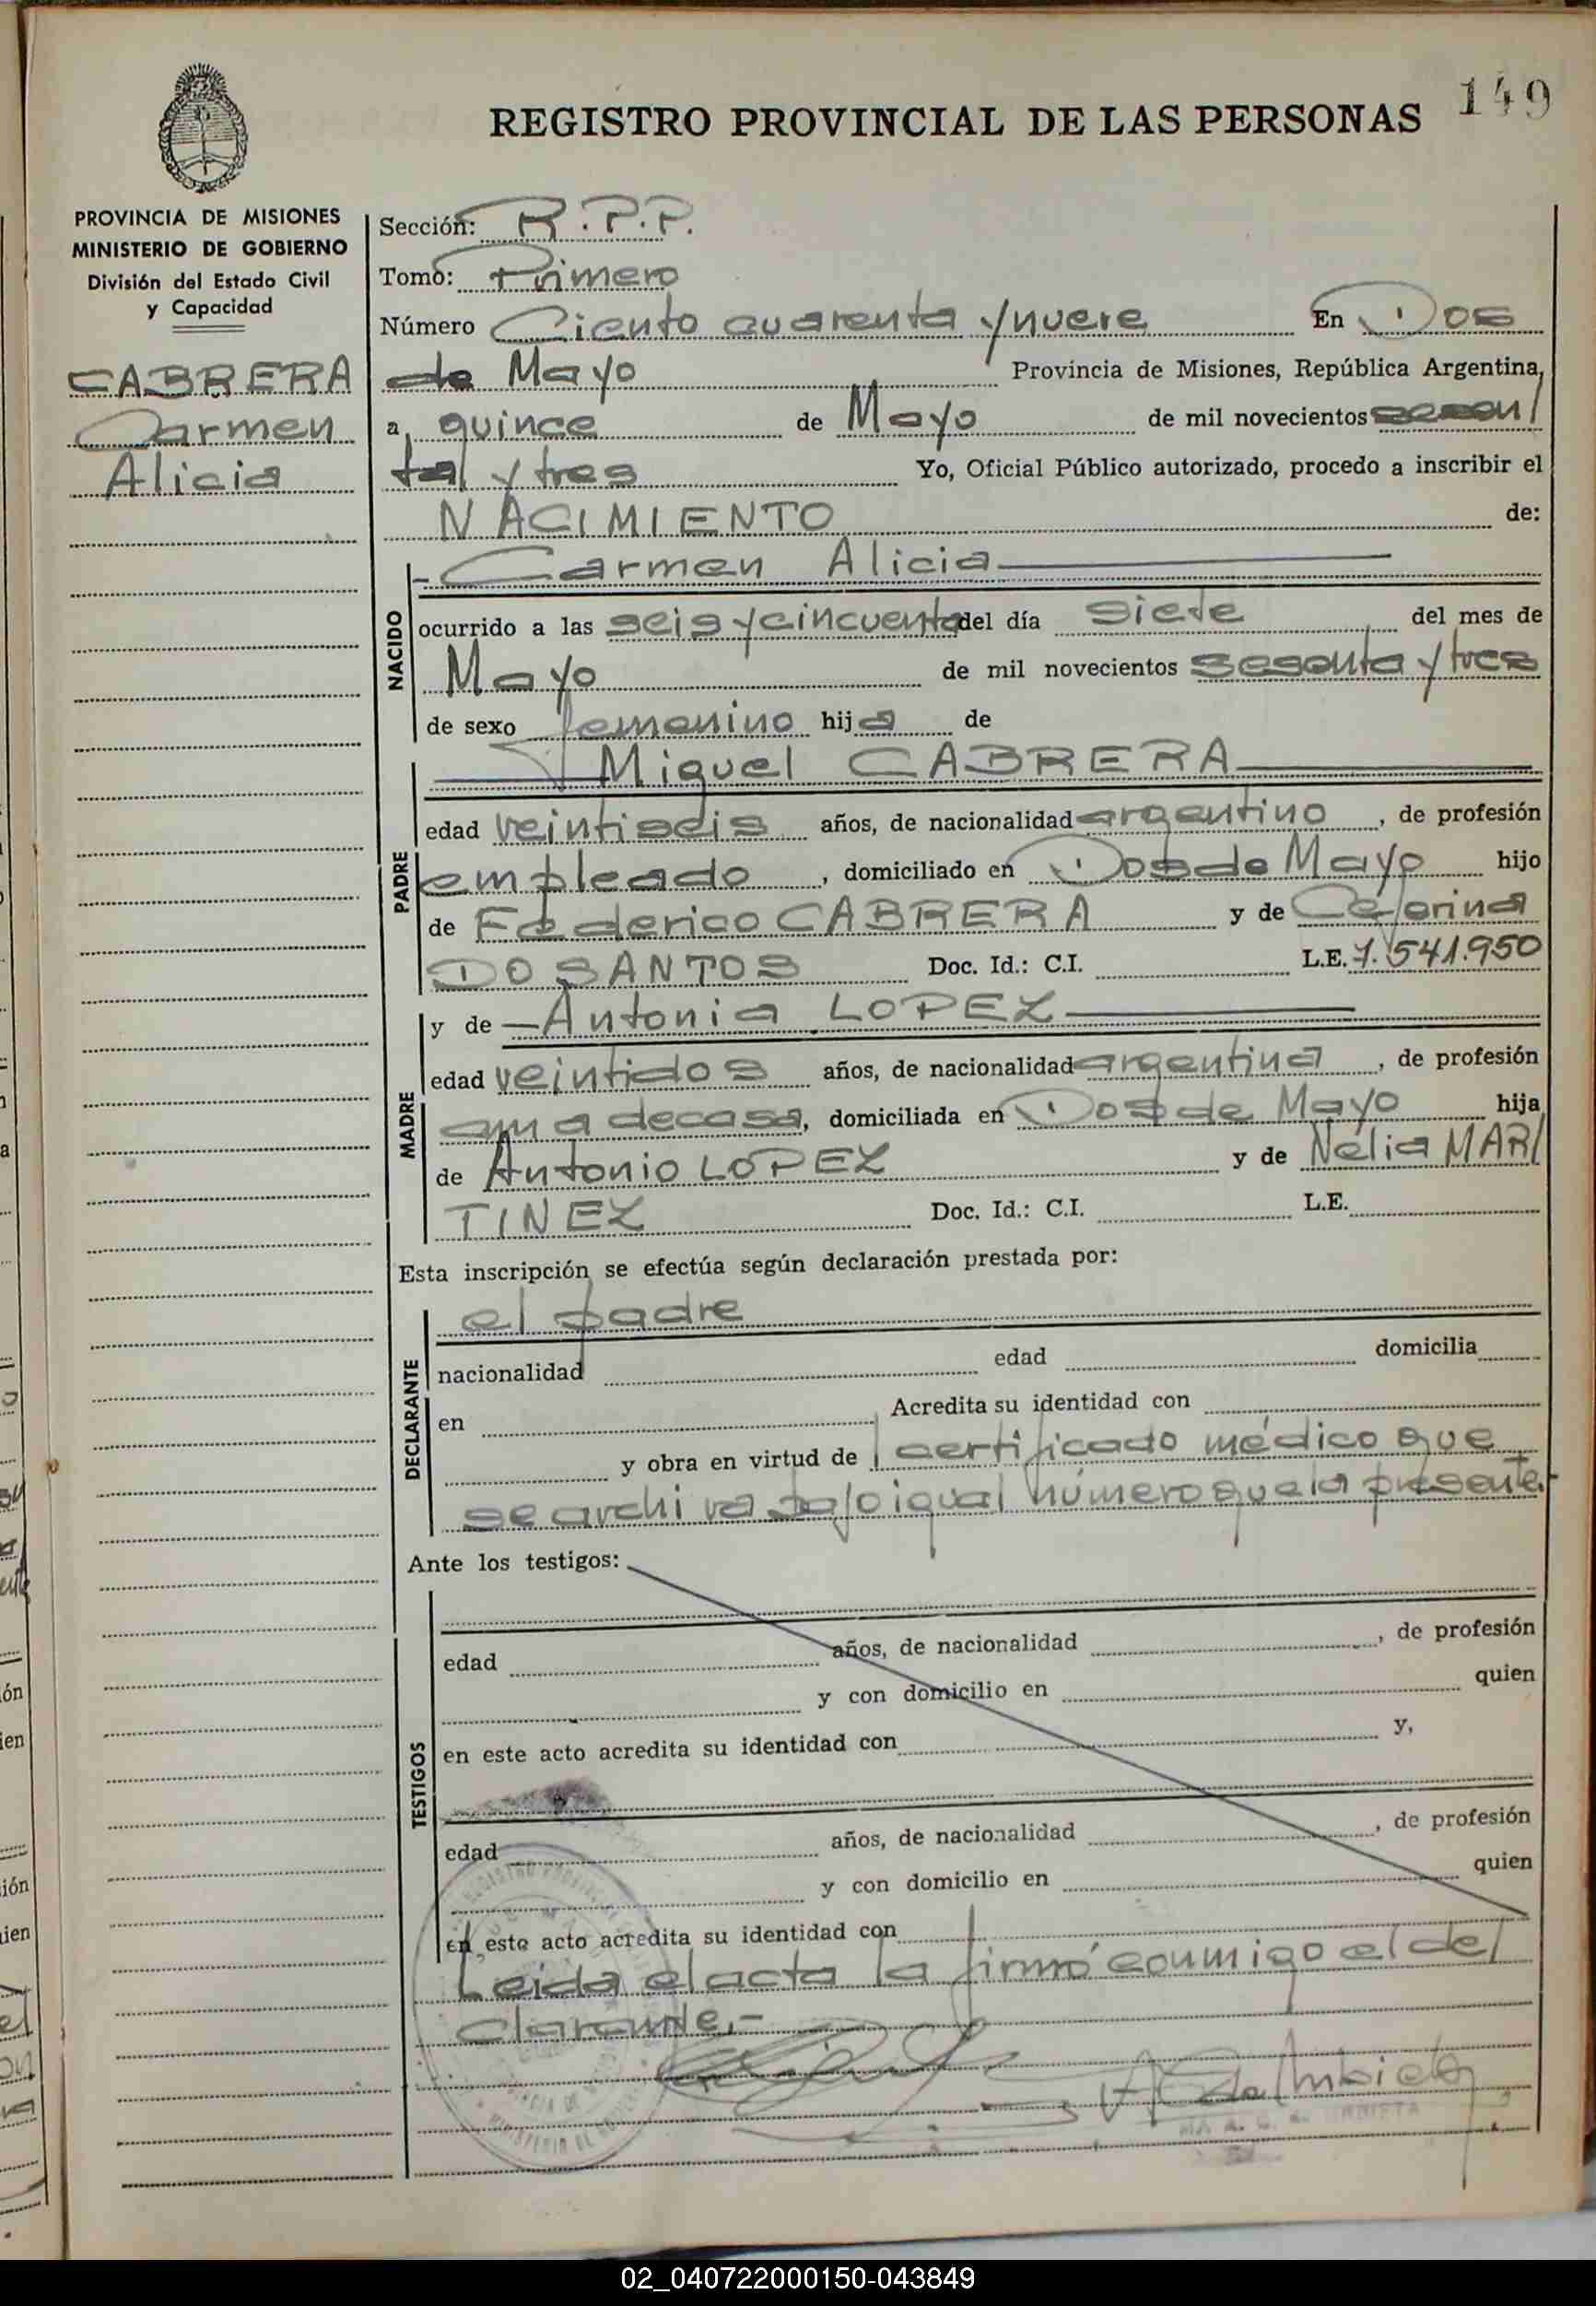 149
REGISTRO PROVINCIAL DE LAS PERSONAS
PROVINCIA DE MISIONES
MINISTERIO DE GOBIERNO
División del Estado Civil
y Capacidad
CABRERA
Carmen
Alicia
Sección: R.P.P.
Tomo: Primero
Número Ciento cuarenta y nueve En Dos
de Mayo Provincia de Misiones, República Argentina,
a quince de Mayo de mil novecientos sesen/
ta/ y tres Yo, Oficial Público autorizado, procedo a inscribir el
NACIMIENTO de:
NACIDO
- Carmen Alicia
ocurrido a las seis y cincuenta del día siete del mes de
Mayo de mil novecientos sesenta y tres
de sexo femenino hija de
PADRE
Miguel CABRERA
edad veintiseis años, de nacionalidad argentino, de profesión
empleado, domiciliado en Dos de Mayo hijo
de Federico CABRERA y de Ceferina
DO SANTOS Doc. Id.: C.I. L.E. 7.541.950
MADRE
y de Antonia LOPEZ
edad veintidos años, de nacionalidad argentina, de profesión
ama de casa, domiciliada en Dos de Mayo hija
de Antonio LOPEZ y de Nélia MAR/
TINEZ Doc. Id.: C.I. L.E.
Esta inscripción se efectúa según declaración prestada por:
DECLARANTE
el padre
nacionalidad edad domicilia
en Acredita su identidad con
y obra en virtud de certificado médico que
se archiva bajo igual número que la presente.-
Ante los testigos:
TESTIGOS
edad años, de nacionalidad , de profesión
y con domicilio en quien
en este acto acredita su identidad con y,
edad años, de nacionalidad , de profesión
y con domicilio en quien
en este acto acredita su identidad con
Leida el acta la firmó conmigo el de/
clarante.-
02_040722000150-043849